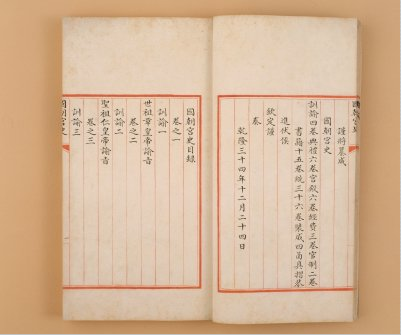 國朝宮史
謹將纂成
國朝宮史
訓諭四卷典禮六卷宮殿六卷經費三卷官制二卷
書籍十五卷統三十六卷裝成四函具摺恭
進伏候
欽定謹
奏
乾隆三十四年十二月二十四日
國朝宮史目錄
卷之一
訓諭一
世祖章皇帝諭旨
卷之二
訓諭二
聖祖仁皇帝諭旨
卷之三
訓諭三
國朝宮史